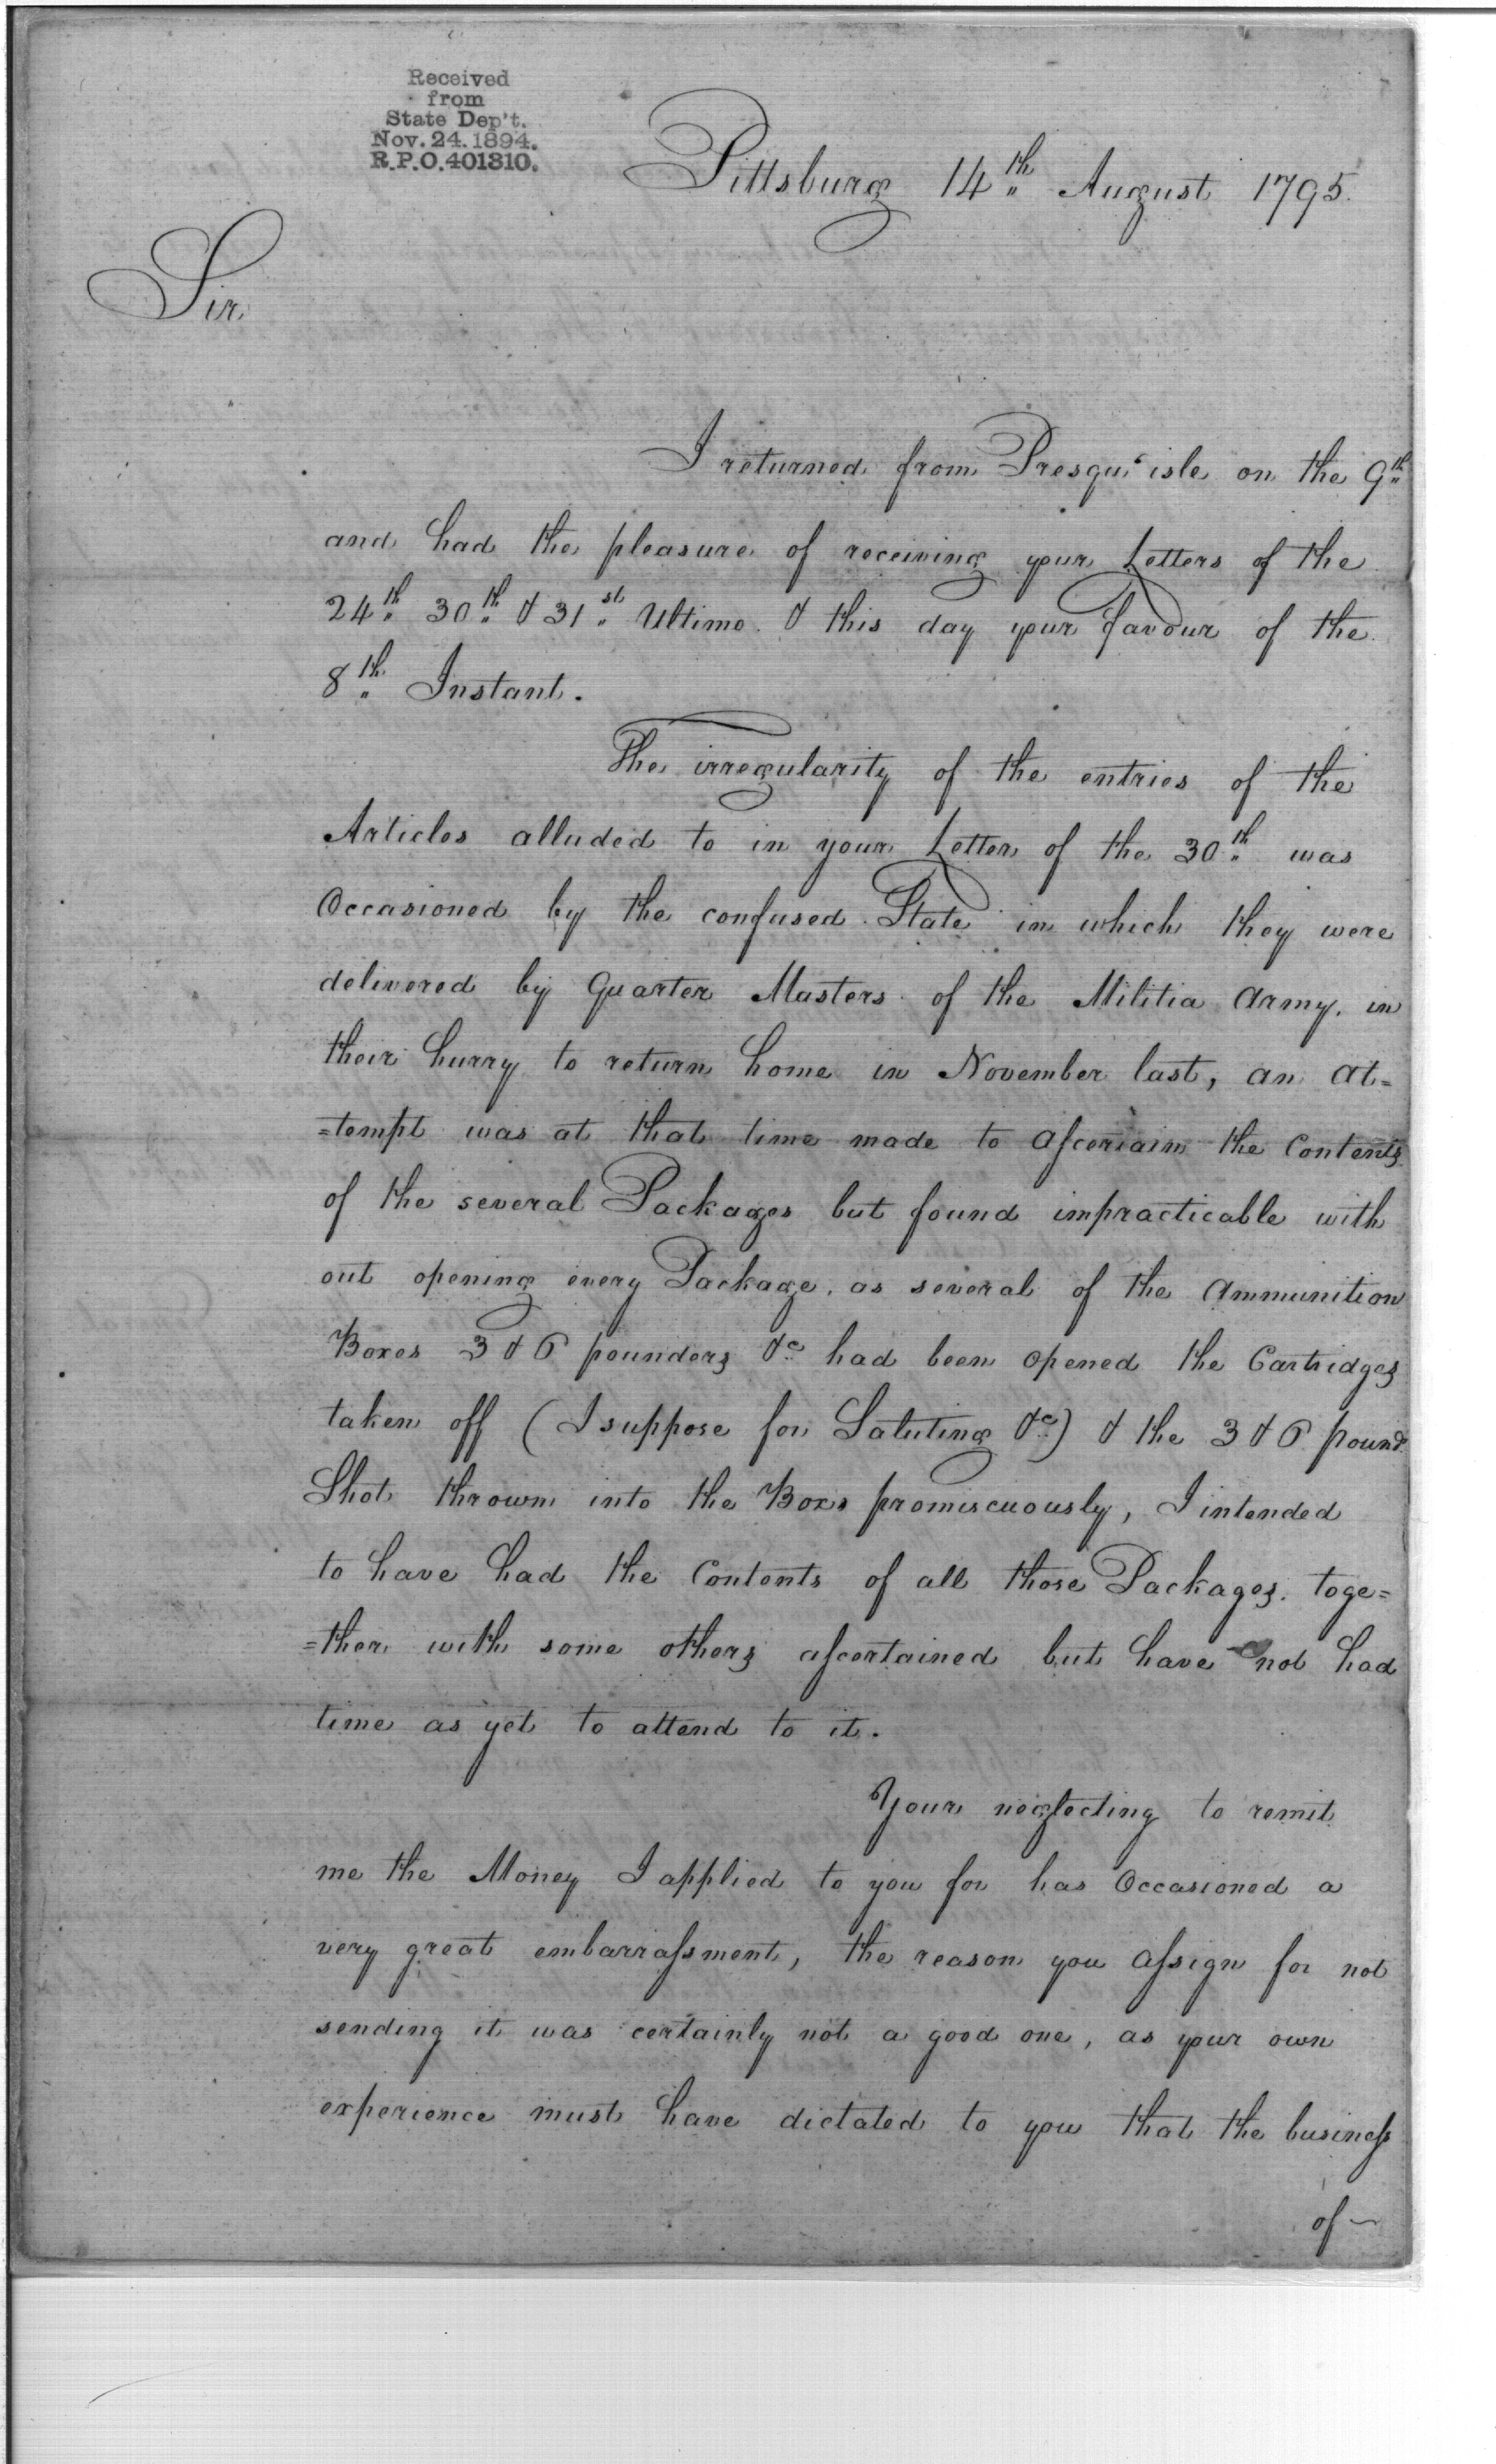 Received
from
State Dep't.
Nov. 24. 1894.
R.P.O. 401310.
Pittsburg 14th August 1795.
Sir
I returned from Presqu' isle on the 9th
and had the pleasure of receiving your Letters of the
24th 30th & 31st Ultimo. & this day your favour of the
8th Instant.
The irregularity of the entries of the
Articles alluded to in your Letter of the 30th was
Occasioned by the confused State in which they were
delivered by Quarter Masters of the Militia Army. in
their hurry to return home in November last, an at=
=tempt was at that time made to aſcertain the Contents
of the several Packages but found impracticable with
out opening every Package, as several of the Ammunition
Boxes 3 & 6 pounders &c had been opened the Cartridges
taken off (I suppose for Saluting &c) & the 3 & 6 pound
Shot thrown into the Boxs promiscuously, I intended
to have had the Contents of all those Packages. toge=
=ther with some others aſcertained but have not had
time as yet to attend to it.
Your neglecting to remit
me the Money I applied to you for has Occasioned a
very great embarraſsment, the reason you aſsign for not
sending it was certainly not a good one, as your own
experience must have dictated to you that the buſineſs
of